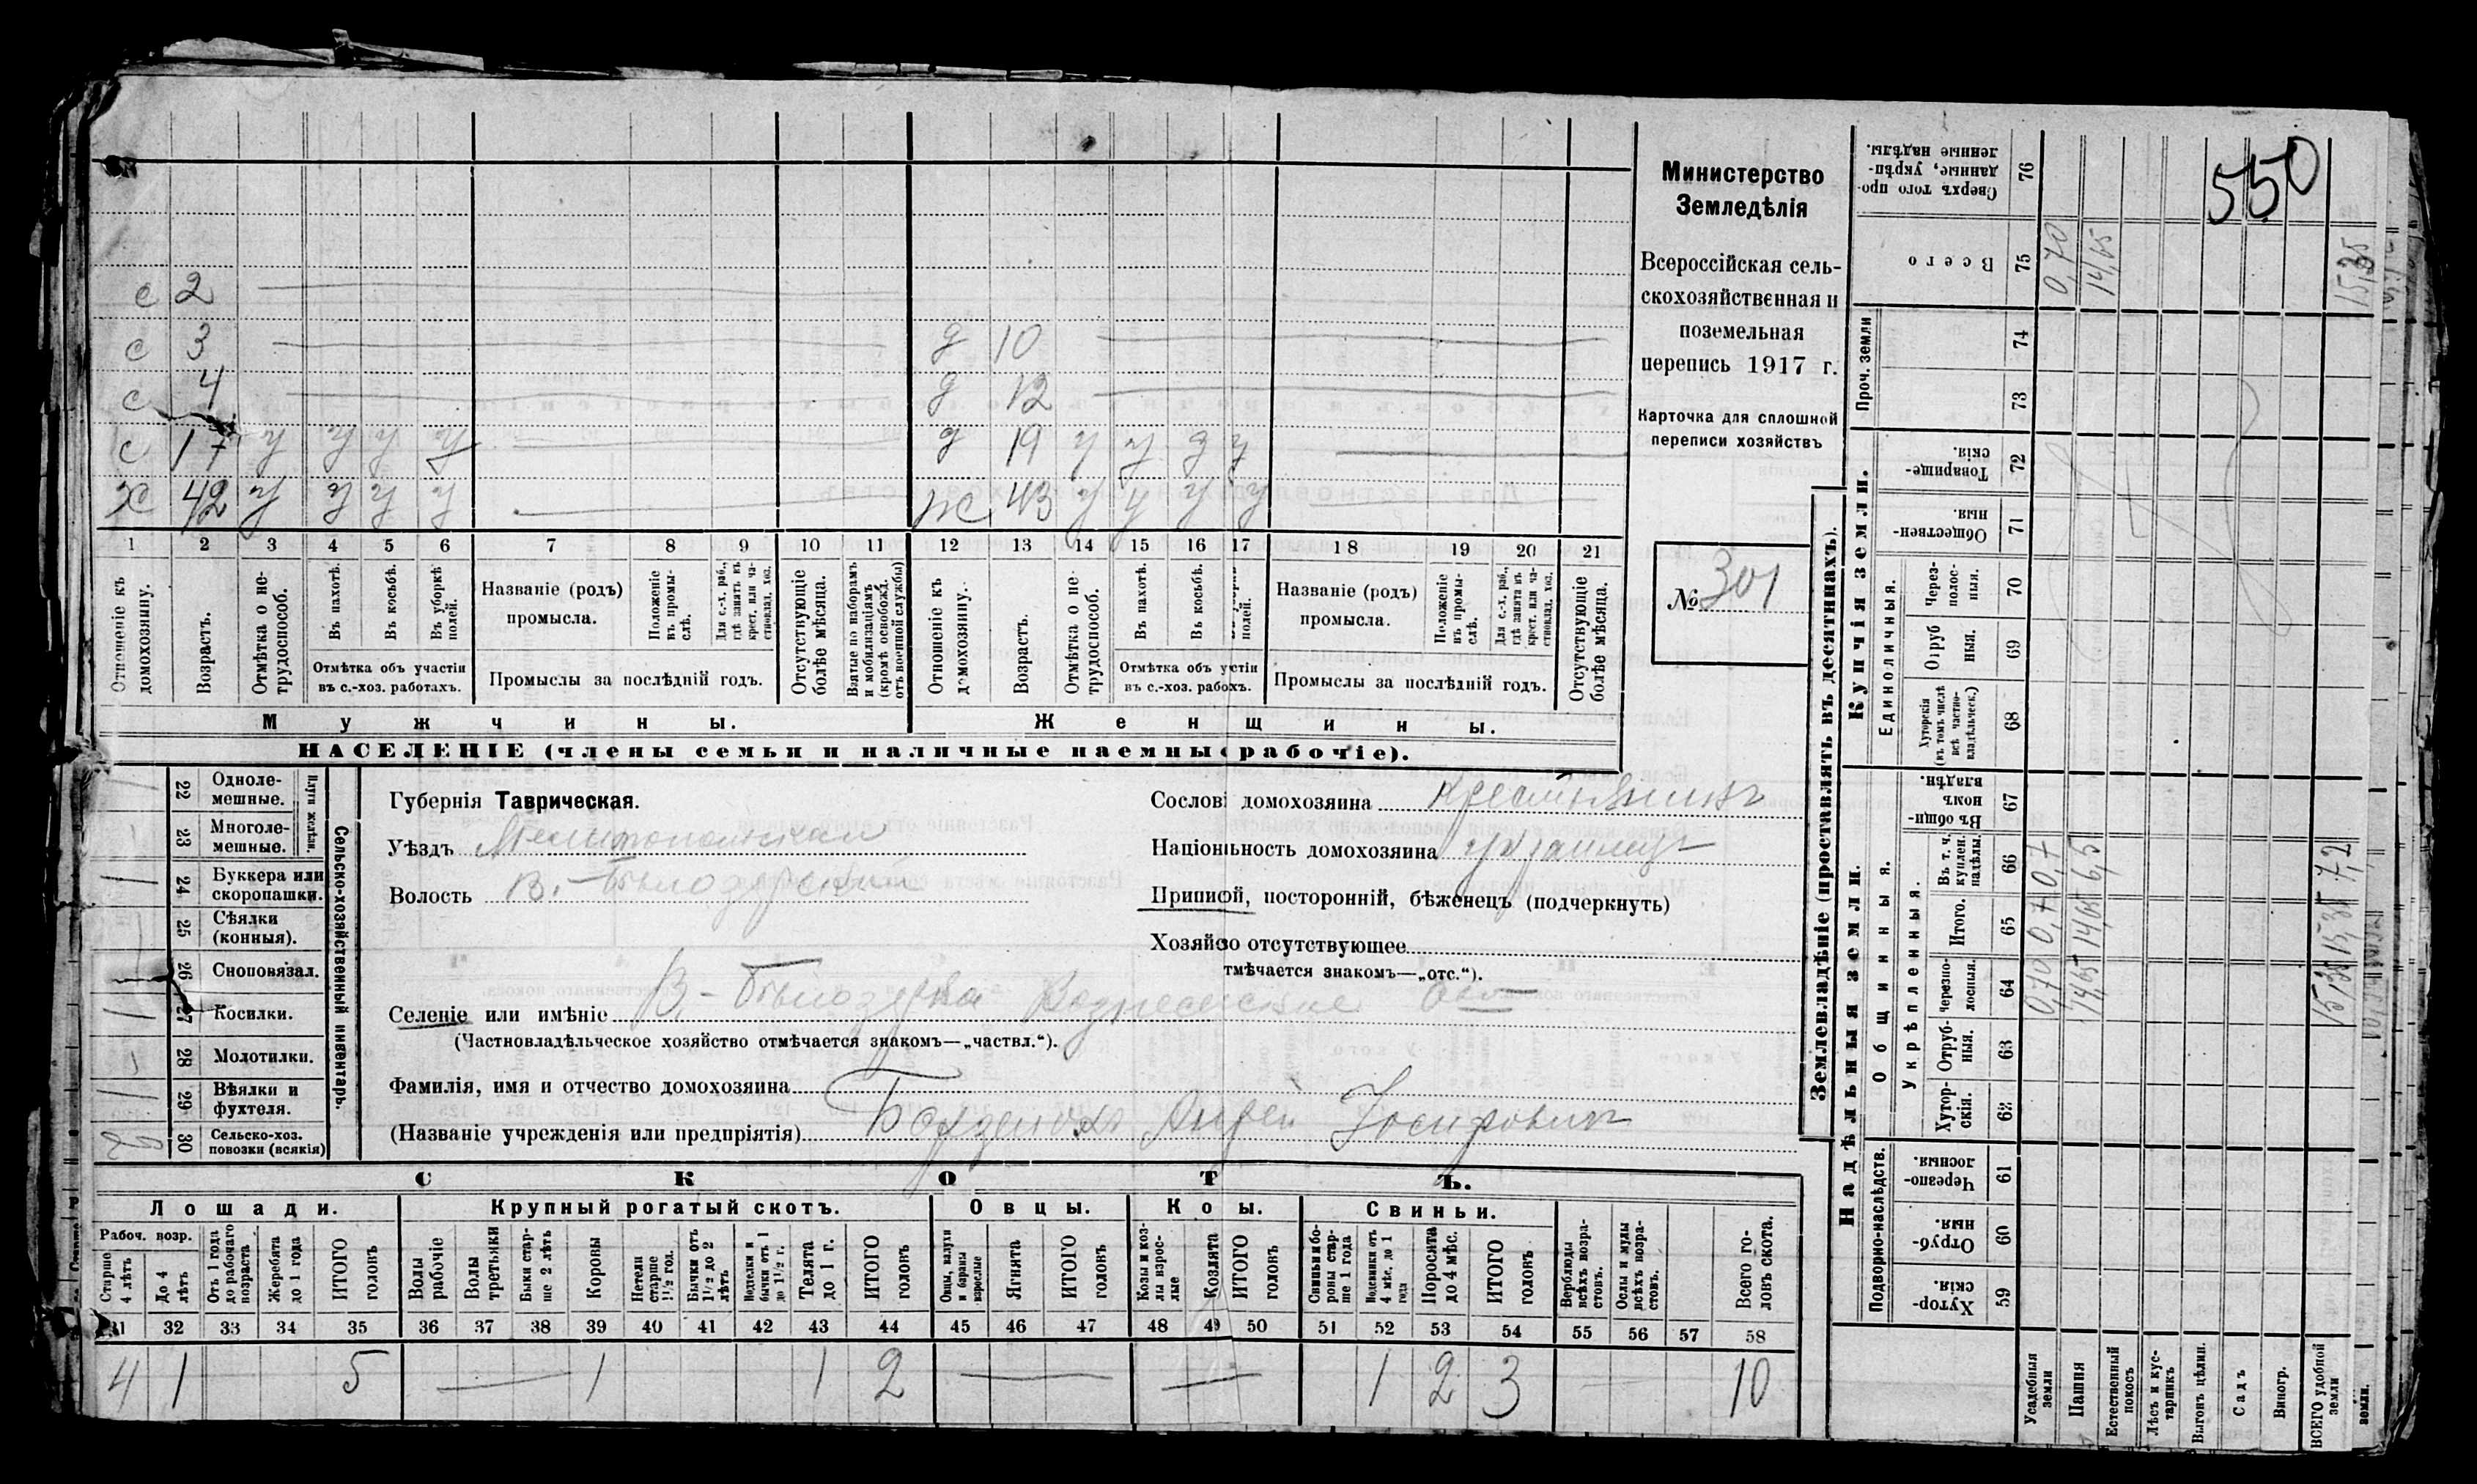 550
Министерство
Земледѣлія
Всероссійская сель-
скохозяйственная и
поземельная
перепись 1917 г.
Карточка для сплошной
переписи хозяйствъ
№ 301
с 2
с 3
с 4
с 17 у у у у
х 42 у у у у
д 10
д 12
д 19 у у у у
ж 43 у у у у
1 2 3 4 5 6 7 8 9 10 11 12 13 14 15 16 17 18 19 20 21
Отношеніе къ домохозяину.
Возрастъ.
Отмѣтка о не-трудоспособ.
Въ пахотѣ.
Въ косьбѣ.
Въ уборкѣ полей.
Отмѣтка объ участіи
въ с.-хоз. работахъ.
Названіе (родъ)
промысла.
Положеніе въ промы-слѣ.
Для с.-х. раб., гдѣ занятъ въ крест. или ча-стновлад. хоз.
Промыслы за послѣдній годъ.
Отсутствующіе болѣе мѣсяца.
Взятые по наборамъ и мобилизаціямъ (кромѣ освобожд. отъ военной службы)
Отношеніе къ домохозяину.
Возрастъ.
Отмѣтка о не-трудоспособ.
Въ пахотѣ.
Въ косьбѣ.
полей.
Отмѣтка объ у стіи
въ с.-хоз. раб хъ.
Названіе (родъ)
промысла.
Положеніе въ промы-слѣ.
Для с.-х. раб., гдѣ занята въ крест. или ча-стновлад. хоз.
Промыслы за послѣдній годъ.
Отсутствующіе болѣе мѣсяца.
Мужчины.
Женщины.
НАСЕЛЕНІЕ (члены семьи и наличные наемны рабочіе).
Сельско-хозяйственный инвентарь.
Плуги желѣзн.
22 Одноле-мешные.
23 Многоле-мешные.
24 Буккера или скоропашки.
25 Сѣялки (конныя).
26 Сноповязал.
27 Косилки.
28 Молотилки.
29 Вѣялки и фухтеля.
30 Сельско-хоз. повозки (всякія)
Губернія Таврическая.
Уѣздъ Мелитопольскій
Волость В.-Бѣлозерской
Сослові домохозяина крестьянинъ
Націон ьность домохозяина украинецъ
Припис й, посторонній, бѣженецъ (подчеркнуть)
Хозяй во отсутствующее
тмѣчается знакомъ—„отс.“).
Селеніе или имѣніе В.-Бѣлозерка Вознесенское
(Частновладѣльческое хозяйство отмѣчается знакомъ—„частвл.“).
Фамилія, имя и отчество домохозяина
(Названіе учрежденія или предпріятія) Андрей Іосифовичъ
СКОТЪ.
Лошади.
Крупный рогатый скотъ.
Овцы.
Ко ы.
Свиньи.
Рабоч. возр.
Старше 4 лѣтъ
До 4 лѣтъ
Отъ 1 года до рабочаго возраста
Жеребята до 1 года
ИТОГО головъ
Волы рабочіе
Волы третьяки
Быки стар-ше 2 лѣтъ
Коровы
Нетели старше 1½ год.
Бычки отъ 1½ до 2 лѣтъ
Нетелки и бычки отъ 1 до 1½ г.
Телята до 1 г.
ИТОГО головъ
Овцы, валухи и бараны взрослые
Ягнята
ИТОГО головъ
Козы и коз-лы взрос-лые
Козлята
ИТОГО головъ
Свиньи и бо-ровы стар-ше 1 года
Подсвинки отъ 4 мѣс. до 1 года
Поросята до 4 мѣс.
ИТОГО головъ
Верблюды всѣхъ возра-стовъ.
Ослы и мулы всѣхъ возра-стовъ.
Всего го-ловъ скота.
31 32 33 34 35 36 37 38 39 40 41 42 43 44 45 46 47 48 49 50 51 52 53 54 55 56 57 58
4 1 5 1 1 2 1 2 3 10
Землевладѣніе (проставлять въ десятинахъ).
Надѣльныя земли.
Купчія земли.
Подворно-наслѣдств.
Общинныя.
Укрѣпленныя.
Единоличныя.
Проч. земли
Хутор-скія. 59
Отруб-ныя. 60
Черезпо-лосныя. 61
Хутор-скія. 62
Отруб-ныя. 63
Черезпо-лосныя. 64
Итого. 65
Въ т. ч. куплен. надѣлы. 66
Въ общин-номъ владѣн. 67
Хуторскія (въ томъ числѣ всѣ частно-владѣльческ.) 68
Отруб ныя. 69
Через-полос-ныя. 70
Обществен-ныя. 71
Товарище-скія. 72
73
74
Всего 75
Сверхъ того про-данные, укрѣп-ленные надѣлы. 76
Усадебныя земли 0,70 0,7 0,7 0,70
Пашня 14,65 14,65 6,5 14,65
Естественный покосъ
Лѣсъ и кус-тарникъ
Выгонъ цѣлин.
Садъ
Виногр.
ВСЕГО удобной земли 15,35 15,35 7,2 15,35
земли.